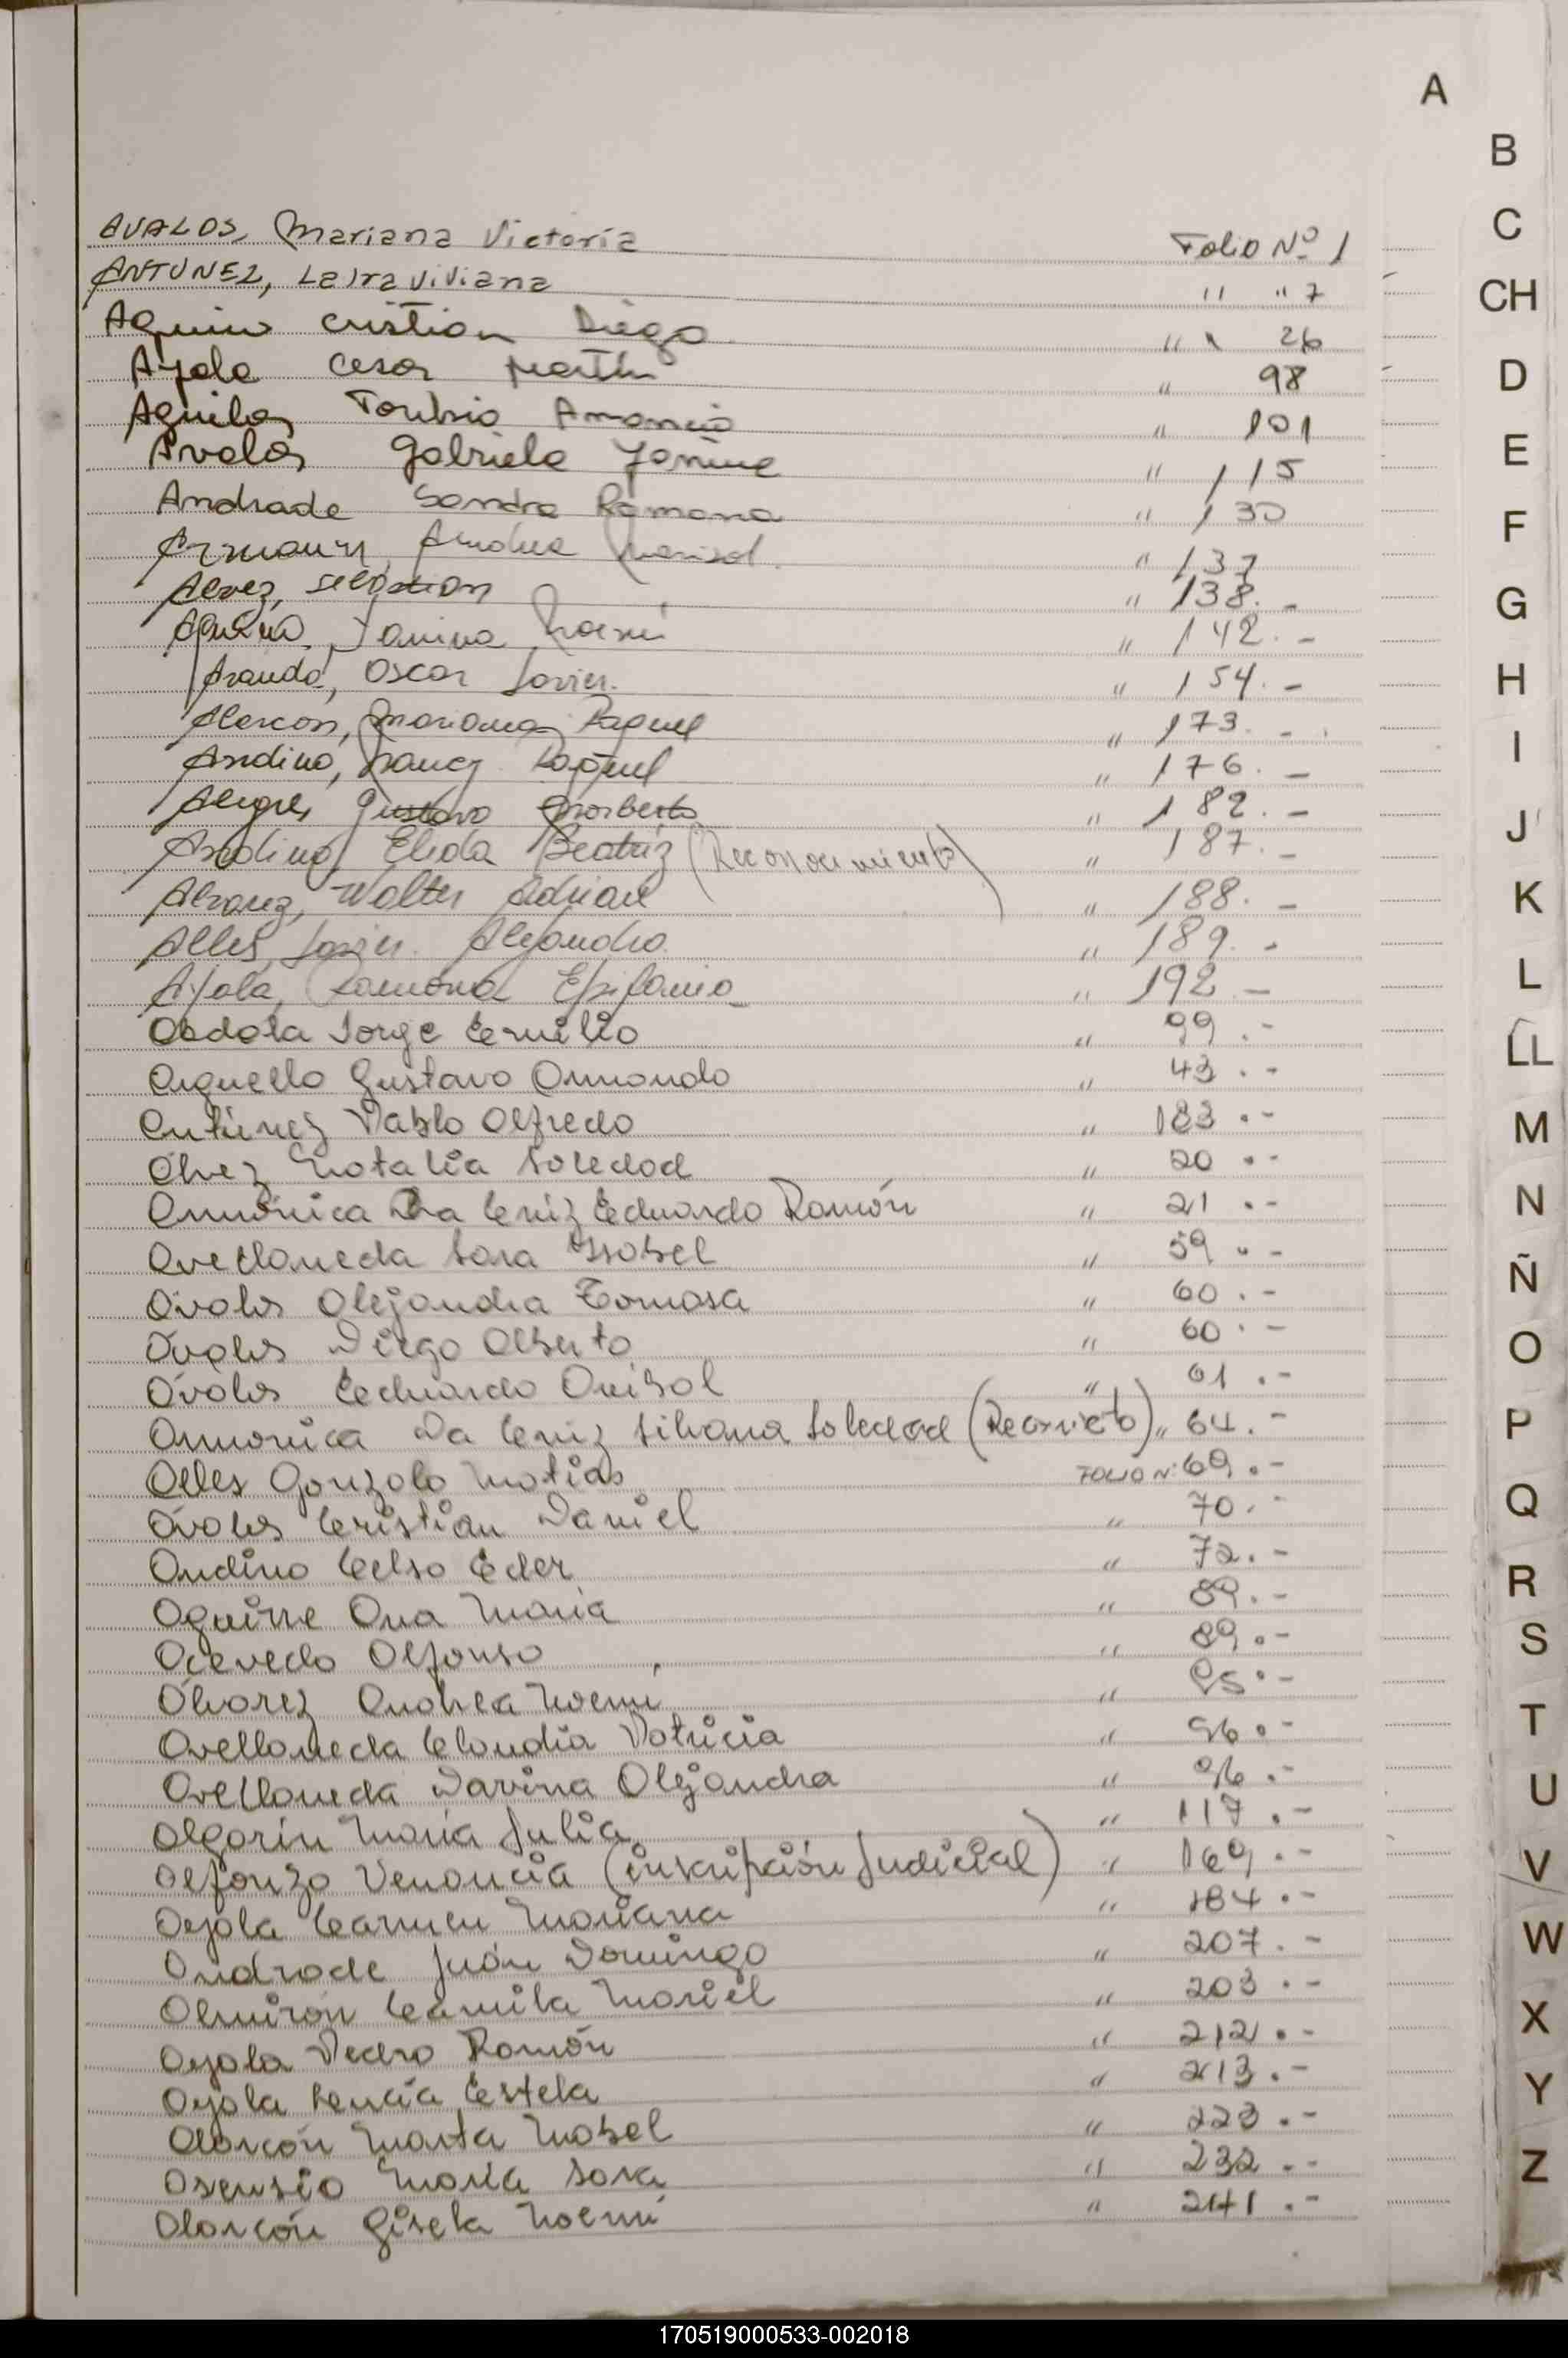 A
B
C
CH
D
E
F
G
H
I
J
K
L
LL
M
N
Ñ
O
P
Q
R
S
T
U
V
W
X
Y
Z
AVALOS, Mariana Victoria Folio Nº 1
ANTUNEZ, Laira Viviana " " 7
Aquino Cristian Diego " " 26
Ayala Cesar Martin " 98
Aguilar Toribio Amancio " 101
Avalos Gabriela Janine " 115
Andrade Sandra Ramona " 130
Andrea Marisol " 137
Alvez, Sebastian " 138.-
Aquino, Yanina Noemi " 142.-
Aranda, Oscar Javier. " 154.-
Alarcon, Mariana Raquel " 173.-
Andino, Nancy Raquel " 176.-
Alegre, Gustavo Norberto " 182.-
Andino, Elida Beatriz (Reconocimiento) " 187.-
Alvarez, Walter Adrian " 188.-
Alles, Javier Alejandro " 189.-
Ayala, Ramona Epifania " 192.-
Jorge Emilio " 99.-
Arguello Gustavo Armando " 43.-
Antúnez Pablo Alfredo " 183.-
Alvez Natalia Soledad " 20.-
Armónica Da Cruz Eduardo Ramón " 21.-
Avellaneda Sara Ysabel " 59.-
Avalos Alejandra Tomasa " 60.-
Avalos Diego Alberto " 60.-
Avalos Eduardo Anibal " 61.-
Armonica Da Cruz Silvana Soledad (Reconicto) " 64.-
Alles Gonzalo Matias FOLIO Nº 69.-
Avalos Cristian Daniel " 70.-
Andino Celso Eder " 72.-
Aguirre Ana Maria " 89.-
Acevedo Alfonso " 89.-
Álvarez Andrea Noemi " 95.-
Avellaneda Claudia Patricia " 96.-
Avellaneda Davina Alejandra " 96.-
Algarin Maria Julia " 117.-
Alfonzo Venancia (inscripción Judicial) " 169.-
Ayala Carmen Mariana " 184.-
Andrade Juán Domingo " 207.-
Almirón Camila Mariel " 203.-
Ayala Pedro Ramón " 212.-
Ayala Lucia Estela " 213.-
Alarcón Marta Mabel " 223.-
Asensio Maria Sara " 232.-
Alarcón Gisela Noemi " 241.-
170519000533-002018